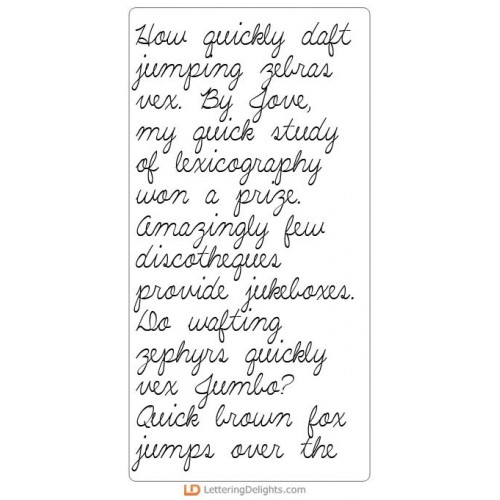 How quickly daft
jumping zebras
vex. By Jove,
my quick study
of lexicography
won a prize.
Amazingly few
discotheques
provide jukeboxes.
Do wafting
zephyrs quickly
vex Jumbo?
Quick brown fox
jumps over the
LD LetteringDelights.com